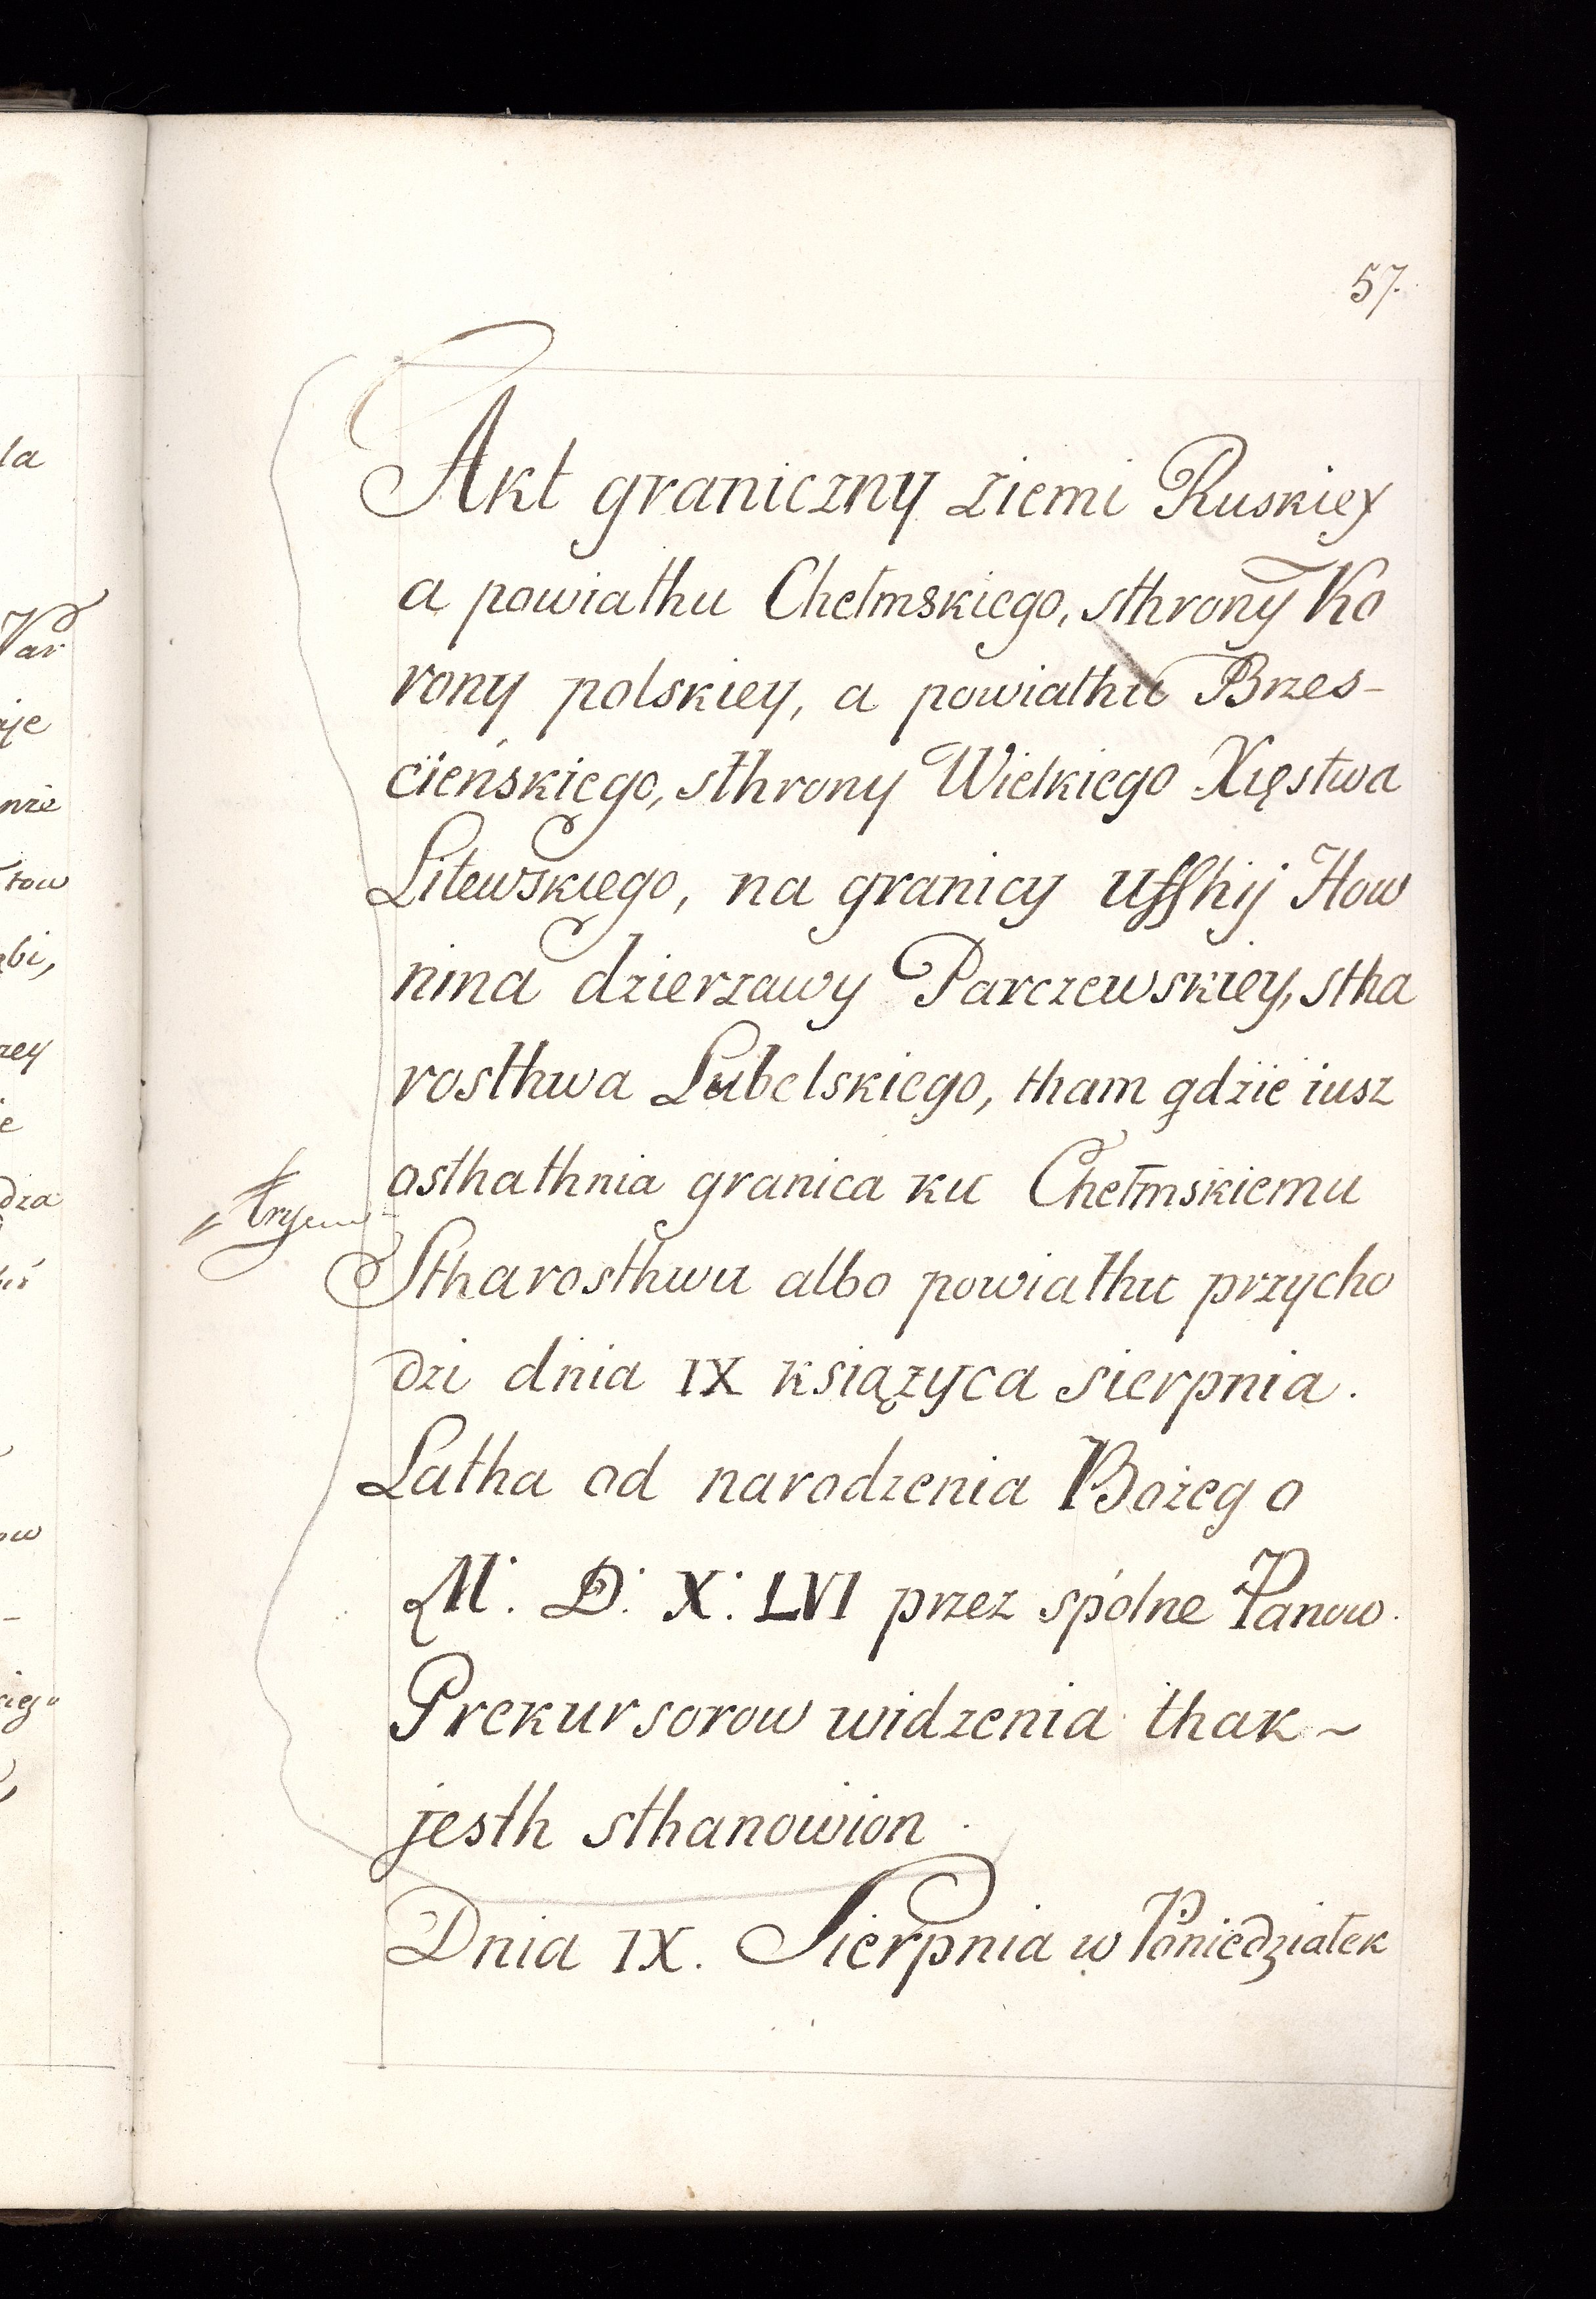 57.
Akt graniczny ziemi Ruskiey
a powiathu Chełmskiego, sthrony Ko
rony polskiey, a powiathu Brzes-
cieńskiego, sthrony Wielkiego Xięstwa
Litewskiego, na granicy uffhij How
nina dzierzawy Parczewskiey, stha
rosthwa Lubelskiego, tham gdzïe iusz
osthathnia granica ku Chełmskiemu
Stharosthwu albo powiathu przycho
dzi dnia IX książyca sierpnia.
Latha od narodzenia Bożego
M. D. X. LVI przez spólne Panow.
Prekursorow widzenia thak ~
jesth sthanowion.
Dnia IX. Sierpnia w Poniedziałek